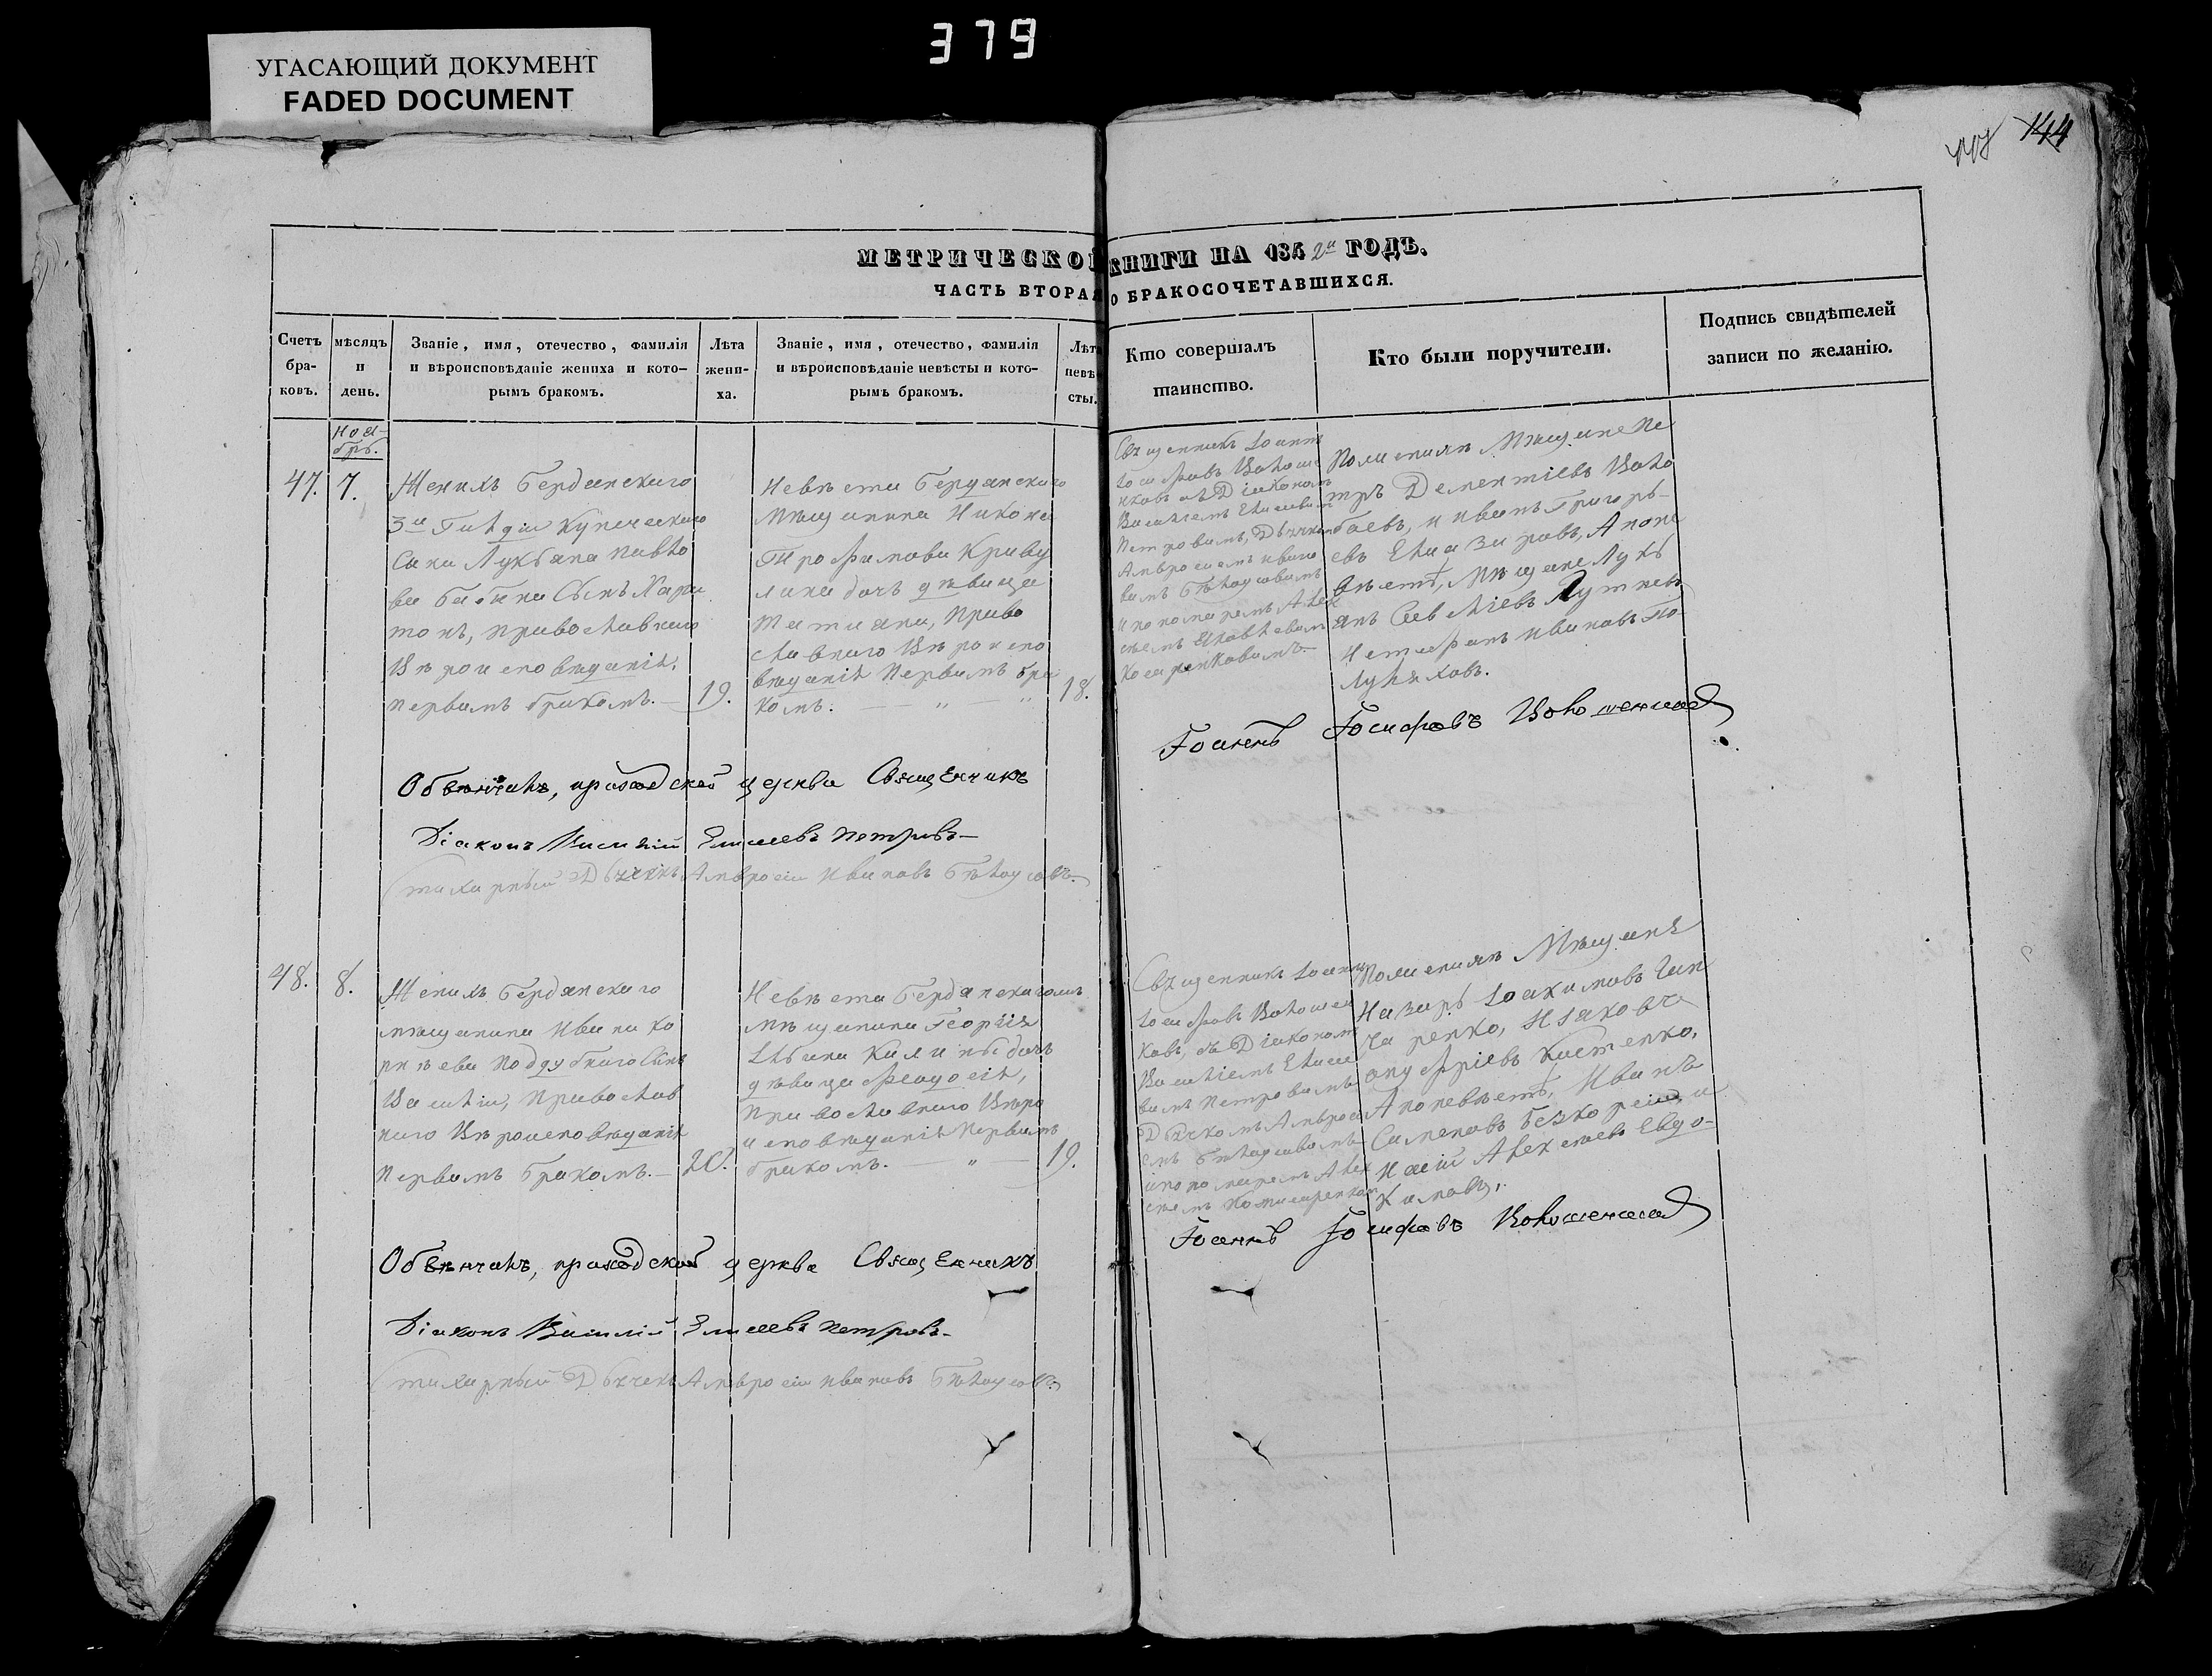 379
УГАСАЮЩИЙ ДОКУМЕНТ
FADED DOCUMENT
144
МЕТРИЧЕСКОЙ КНИГИ НА 1842й ГОДЪ.
ЧАСТЬ ВТОРАЯ О БРАКОСОЧЕТАВШИХСЯ.
Счетъ бра-ковъ.
мѣсяцъ и день.
Званіе, имя, отечество, фамилія и вѣроисповѣданіе жениха и кото-рымъ бракомъ.
Лѣта жени-ха.
Званіе, имя, отечество, фамилія и вѣроисповѣданіе невѣсты и кото-рымъ бракомъ.
Лѣта невѣ-сты.
Кто совершалъ таинство.
Кто были поручители.
Подпись свидѣтелей записи по желанію.
Ноя-
брь.
47.
7.
Женихъ Бердянскаго
3й Гилдіи Купеческаго
Сына Лукьяна Павло
ва Бабина Сынъ Хари
тонъ, православнаго
Вѣроисповѣданія,
первымъ бракомъ.
19.
Невѣста Бердянскаго
мѣщанина Никона
Трофимова Криву
лина дочь дѣвица
Татіяна, Право
славнаго Вѣроиспо
вѣданія первымъ бра
комъ.
18.
Священникъ Іоаннъ
Іосифовъ Волоше
Діакономъ
Василіемъ Елисѣевымъ
Петровымъ, Дьячкомъ
Амвросіемъ Ивано
вымъ Бѣлоусовымъ
и пономаремъ Алек
По женихѣ Мѣщане Пе
тръ Дементіевъ Воло
баевъ, и Иванъ Григорь-
евъ Елиазаровъ, А по не
вѣстѣ, Мѣщане Лукь
янъ Савеліевъ Лутнев
Иванавъ По
Іоаннъ Іосифовъ Волошеновъ
Обвѣнчалъ, приходской церкви Священникъ
Діаконъ Василій Елисѣевъ Петровъ
Стихарный Дьячекъ Амвросій Ивановъ Бѣлоусовъ
48.
8.
Женихъ Бердянскаго
мѣщанина Ивана Ко
рнѣева Поддубнаго Сынъ
Василій, Православ
наго Вѣроисповѣданія
Первымъ бракомъ.
20.
Невѣста Бердянскаго
мѣщанина Георгія
дочь
дѣвица Феодосія,
Православнаго Вѣро
исповѣданія Первымъ
бракомъ.
19.
Священникъ Іоаннъ
Іосифовъ Волошен
ковъ, съ Діакономъ
Василіемъ Елисѣе
вымъ Петровымъ
Дьячкомъ Амвросі
емъ Бѣлоусовымъ
и пономаремъ Алек
По женихѣ Мѣщане
Назаръ Іоакимовъ Гон
чаренко, и Яковъ
Онуфріевъ Костенко,
А по невѣстѣ, Иванъ
Сименовъ Безкоре
Алексѣевъ Евдо-
кимовъ.
Іоаннъ Іосифовъ Волошеновъ
Обвѣнчалъ, приходской церкви Священникъ
Діаконъ Василій Елисѣевъ Петровъ
Стихарный Дьячекъ Амвросій Ивановъ Бѣлоусовъ